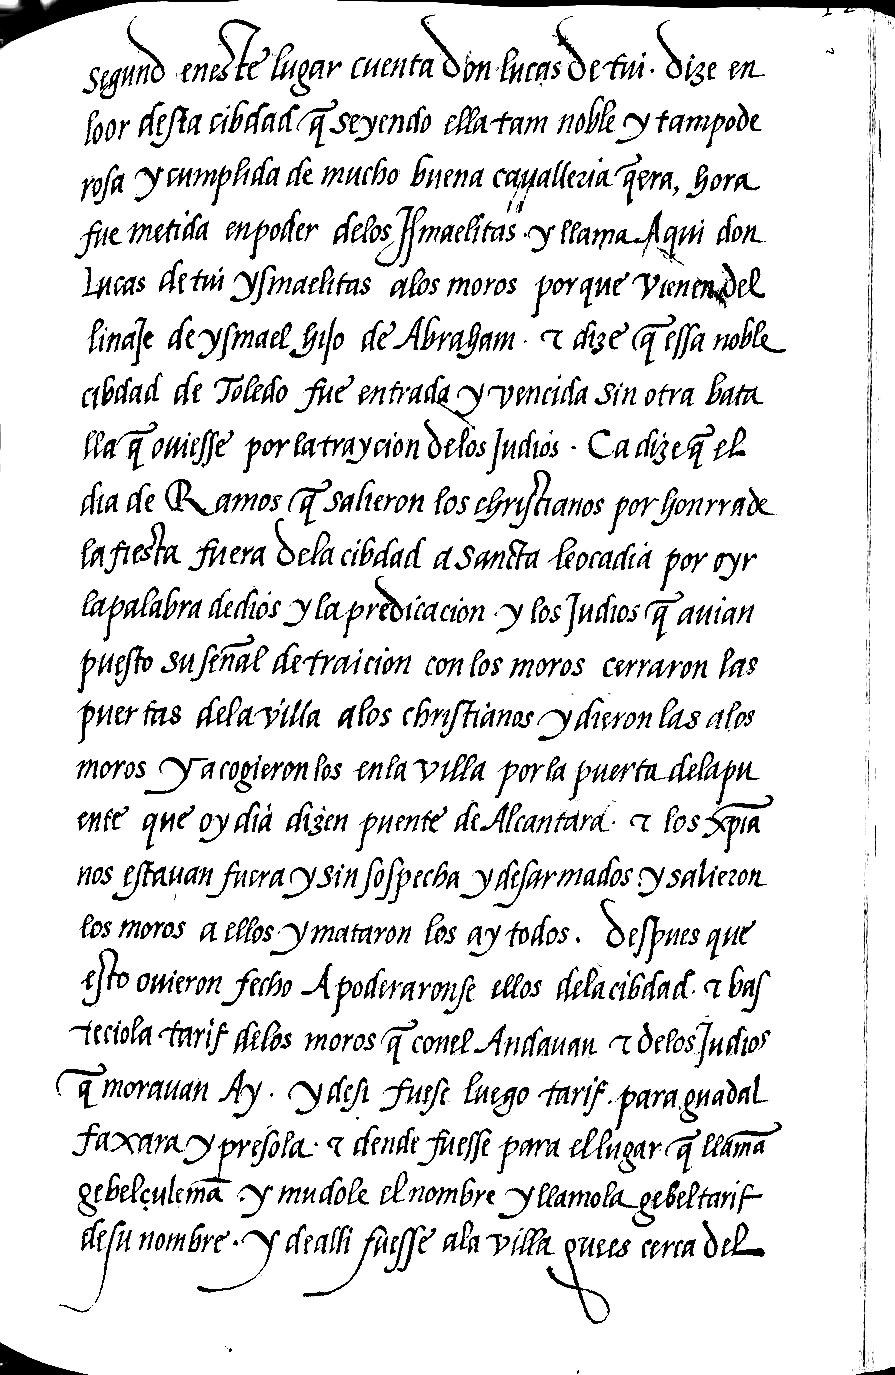 segund eneste lugar cuenta don lucas de tui. dize en
loor desta cibdad q̃ seyendo ella tam noble y tampode
rosa y cumplida de mucho buena cavalleria q̃era, hora
fue metida enpoder delos Jsmaelitas y llama Aqui don
Lucas de tui ysmaelitas alos moros porque vienen del
linaje de ysmael hijo de Abraham. ⁊ dize q̃ essa noble
cibdad de Toledo fue entrada y vencida sin otra bata
lla q̃ ouiesse por latraycion delos Judios. Ca dize q̃ el
dia de Ramos q̃ salieron los christianos por honrrade
lafiesta fuera dela cibdad a sancta leocadia por oyr
lapalabra dedios y la predicacion y los Judios q̃ auian
puesto su señal detraicion con los moros cerraron las
puertas dela villa alos christianos y dieron las alos
moros y acogieron los enla villa por la puerta delapu
ente que oy dia dizen puente de Alcantara. ⁊ los xp̃ia
nos estauan fuera y sin sospecha y desarmados y salieron
los moros a ellos y mataron los ay todos. Despues que
esto ouieron fecho Apoderaronse ellos dela cibdad. ⁊ bas
teciola tarif delos moros q̃ conel Andauan ⁊ delos Judios
q̃ morauan Ay. y desi fuese luego tarif. para guadal
faxara y presola. ⁊ dende fuesse para el lugar q̃ llamã
gebelçulemã y mudole el nombre y llamola gebeltarif
desu nombre. y de alli fuesse ala villa quees cerca del